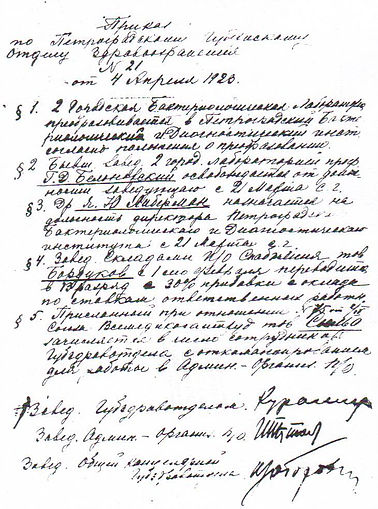 Приказ
по Петроградскому Губернскому
Отделу Здравоохранения
N 21
от 4 Апреля 1923.
§ 1. 2 Городская Бактериологическая Лаборатория
преобразовывается в Петроградский Бакте-
риологический и Диагностический инст.
согласно положения о преобразовании.
§ 2 Бывш. Завед. 2 город. лаборатории проф.
Г.Д. Белоновский освобождается от долж-
ности заведующего с 21 Марта с.г.
§ 3. Др. Я. Ю. Либерман назначается на
должность директора Петроградск.
Бактериологического и Диагностического
института с 21 Марта с.г.
§ 4. Завед. Складами П/О Снабжения тов.
с 1 сего февраля переводится
в 13 разряд с 30% прибавки с оклада
по ставкам ответственных работн.
§ 5. Присланный при отношении N
Союза Всемедикосантруд тов.
зачисляется в число сотрудников
Губздравотдела с откомандированием
для работы в Админ.-Организ. П/О
Завед. Губздравотделом
Завед. Админ.-Организ. п/о
Завед. Общей канцелярией
Губздравотдела